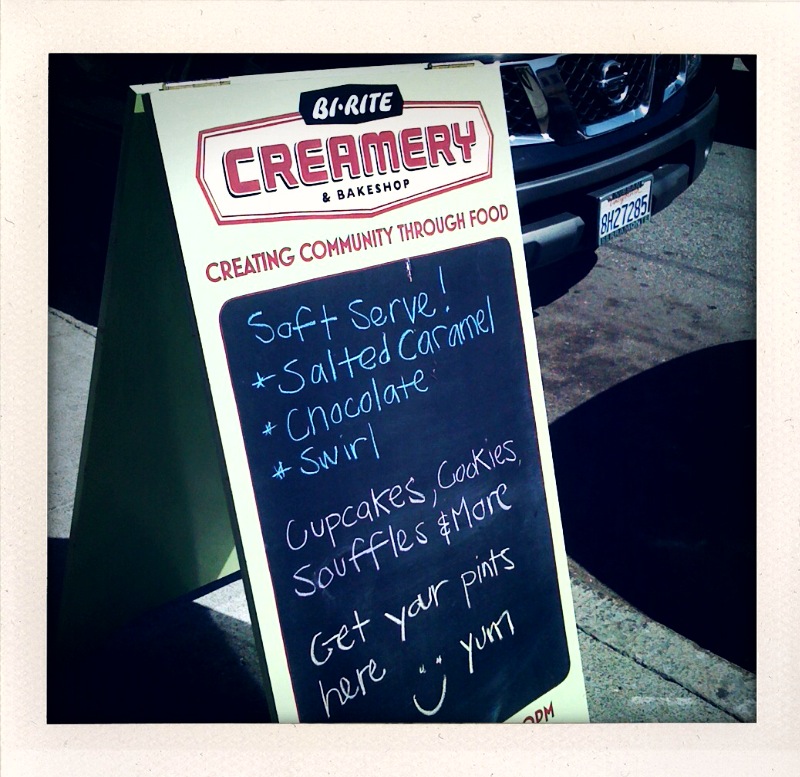 BI-RITE
CREAMERY
& BAKESHOP
CREATING COMMUNITY THROUGH FOOD
Soft Serve!
* Salted Caramel
* Chocolate
* Swirl
Cupcakes, Cookies,
Souffles & More
Get your pints
here yum
8H27285